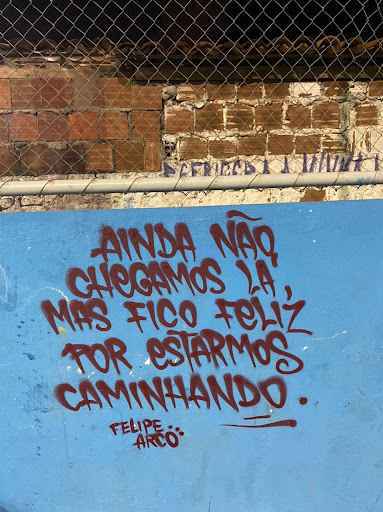 AINDA NÃO
CHEGAMOS LÁ,
MAS FICO FELIZ
POR ESTARMOS
CAMINHANDO.
FELIPE
ARCO